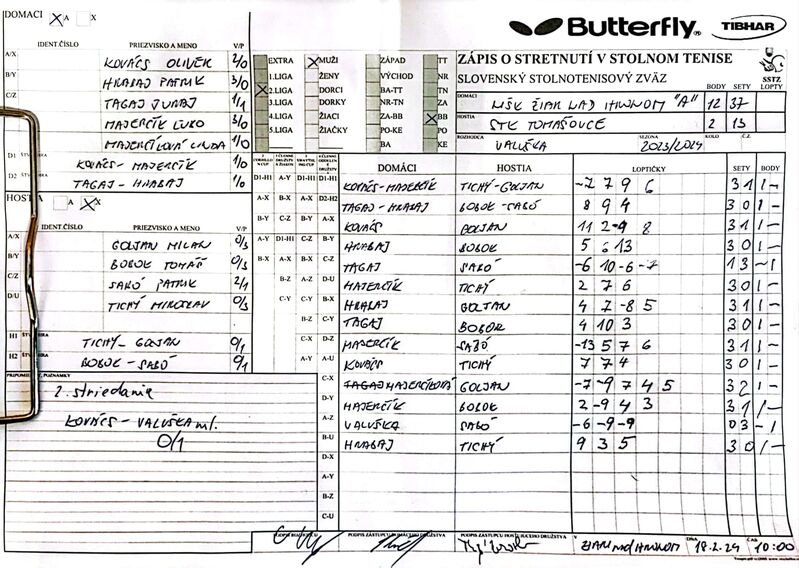 DOMACI X A X
IDENT.ČÍSLO PRIEZVISKO A MENO V/P
A/X KOVÁCS OLIVÉR 2/0
B/Y HRABAJ PATRIK 3/0
C/Z TAGAJ JURAJ 1/1
MAJERČÍK 3/0
MAJERČÍKOVÁ 1/0
D1 KOVÁCS - MAJERČÍK 1/0
D2 TAGAJ - HRABAJ 1/0
HOSTIA A X
IDENT.ČÍSLO PRIEZVISKO A MENO V/P
A/X GOLJAN MILAN 0/3
B/Y BOBOK TOMÁŠ 0/3
C/Z SABÓ PATRIK 2/1
D/U TICHÝ MIROSLAV 0/3
H1 TICHÝ - GOLJAN 0/1
H2 BOBOK - SABÓ 0/1
PRIPOMIENKY, POZNÁMKY
2. striedanie
KOVÁCS - VALUŠKA ml.
0/1
Butterfly TIBHAR
EXTRA X MUŽI ZÁPAD TT
1.LIGA ŽENY VÝCHOD NR
X 2.LIGA DORCI BA-TT TN
3.LIGA DORKY NR-TN ZA
4.LIGA ŽIACI ZA-BB X BB
5.LIGA ŽIAČKY PO-KE PO
BA KE
ZÁPIS O STRETNUTÍ V STOLNOM TENISE
SLOVENSKÝ STOLNOTENISOVÝ ZVÄZ SSTZ
BODY SETY LOPTY
DOMÁCI MŠK ŽIAR NAD HRONOM "A" 12 37
HOSTIA STK TOMÁŠOVCE 2 13
ROZHODCA VALUŠKA SEZÓNA 2023/2024 Č.Z.
DOMÁCI HOSTIA LOPTIČKY SETY BODY
D1-H1 A-Y D1-H1 D1-H1 KOVÁCS-MAJERČÍK TICHÝ-GOLJAN -2 7 9 6 3 1 1 -
A-X B-X A-X D2-H2 TAGAJ - HRABAJ BOBOK - SABÓ 8 9 4 3 0 1 -
B-Y C-Z B-Y A-X KOVÁCS GOLJAN 11 2 -9 8 3 1 1 -
A-Y D1-H1 C-Z B-Y HRABAJ BOBOK 5 6 13 3 0 1 -
B-X A-X B-X C-Z TAGAJ SABÓ -6 10 -6 -7 1 3 - 1
B-Z A-Z D-U MAJERČÍK TICHÝ 2 7 6 3 0 1 -
C-Y C-Y B-X HRABAJ GOLJAN 4 7 -8 5 3 1 1 -
B-Z C-Y TAGAJ BOBOK 4 10 3 3 0 1 -
C-X D-Z MAJERČÍK SABÓ -13 5 7 6 3 1 1 -
A-Y A-U KOVÁCS TICHÝ 7 7 4 3 0 1 -
C-X TAGAJ MAJERČÍKOVÁ GOLJAN -7 -9 7 4 5 3 2 1 -
D-Y MAJERČÍK BOBOK 2 -9 4 3 3 1 1 -
A-Z VALUŠKA SABÓ -6 -9 -9 0 3 - 1
B-U HRABAJ TICHÝ 9 3 5 3 0 1 -
D-X
A-Y
B-Z
C-U
PODPIS ROZHODCU PODPIS ZÁSTUPCU DOMÁCEHO DRUŽSTVA PODPIS ZÁSTUPCU HOSŤUJÚCEHO DRUŽSTVA V ŽIARI nad HRONOM DŇA 18.2.24 ČAS 10:00